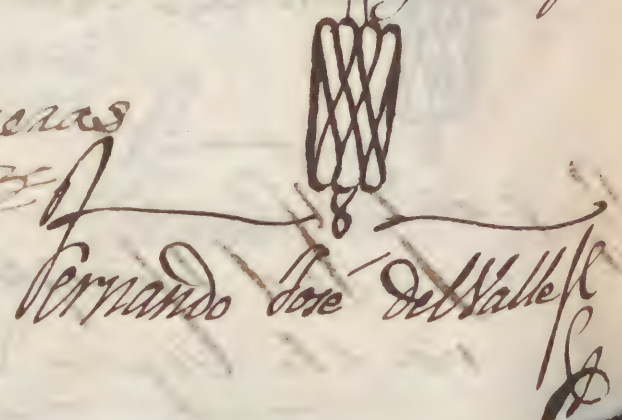 Fernando José del Valle